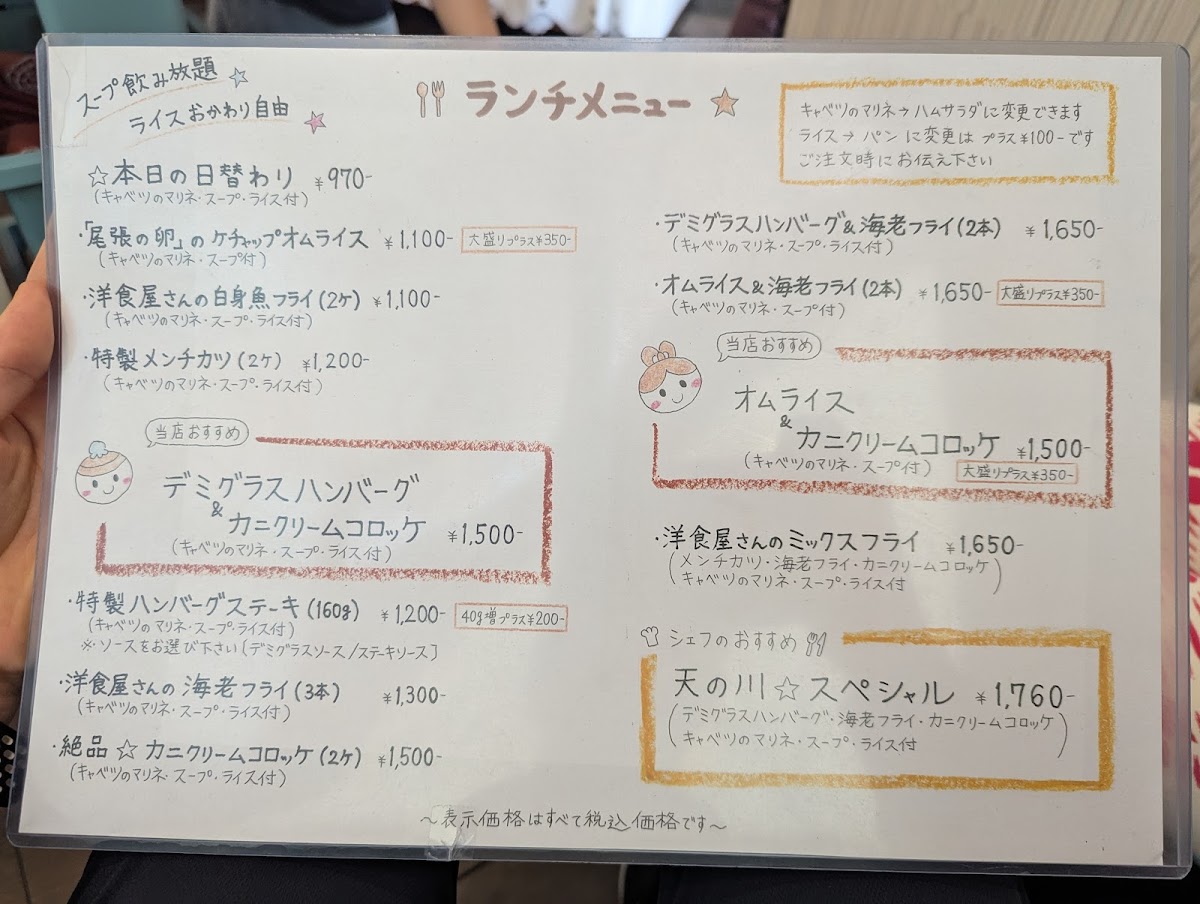 スープ飲み放題
ライスおかわり自由
ランチメニュー
キャベツのマリネ→ハムサラダに変更できます
ライス→パンに変更はプラス¥100-です
ご注文時にお伝え下さい
☆本日の日替わり ¥970-
(キャベツのマリネ・スープ・ライス付)
・「尾張の卵」のケチャップオムライス ¥1,100- 大盛りプラス¥350-
(キャベツのマリネ・スープ付)
・洋食屋さんの白身魚フライ(2ケ) ¥1,100-
(キャベツのマリネ・スープ・ライス付)
・特製メンチカツ(2ケ) ¥1,200-
(キャベツのマリネ・スープ・ライス付)
当店おすすめ
デミグラスハンバーグ
&
カニクリームコロッケ ¥1,500-
(キャベツのマリネ・スープ・ライス付)
・特製ハンバーグステーキ(160g) ¥1,200- 40g増プラス¥200-
(キャベツのマリネ・スープ・ライス付)
※・ソースをお選び下さい[デミグラスソース/ステーキソース]
・洋食屋さんの海老フライ(3本) ¥1,300-
(キャベツのマリネ・スープ・ライス付)
・絶品☆カニクリームコロッケ(2ケ) ¥1,500-
(キャベツのマリネ・スープ・ライス付)
・デミグラスハンバーグ&海老フライ(2本) ¥1,650-
(キャベツのマリネ・スープ・ライス付)
・オムライス&海老フライ(2本) ¥1,650- 大盛りプラス¥350-
(キャベツのマリネ・スープ付)
当店おすすめ
オムライス
&
カニクリームコロッケ ¥1,500-
(キャベツのマリネ・スープ付) 大盛りプラス¥350-
・洋食屋さんのミックスフライ ¥1,650-
(メンチカツ・海老フライ・カニクリームコロッケ
キャベツのマリネ・スープ・ライス付)
シェフのおすすめ
天の川☆スペシャル ¥1,760-
(デミグラスハンバーグ・海老フライ・カニクリームコロッケ
キャベツのマリネ・スープ・ライス付)
～表示価格はすべて税込価格です～